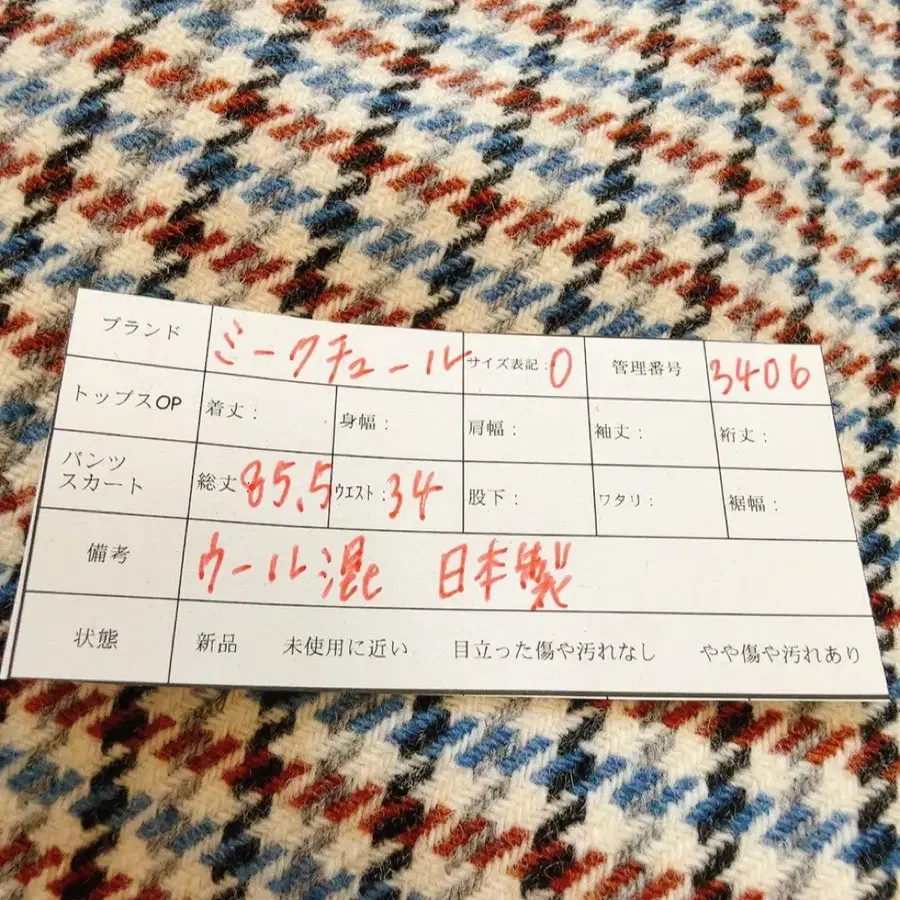 ブランド ミークチュール サイズ表記:0 管理番号 3406
トップスOP 着丈: 身幅: 肩幅: 袖丈: 裄丈:
パンツ
スカート 総丈 85.5 ウエスト:34 股下: ワタリ: 裾幅:
備考 ウール混 日本製
状態 新品 未使用に近い 目立った傷や汚れなし やや傷や汚れあり